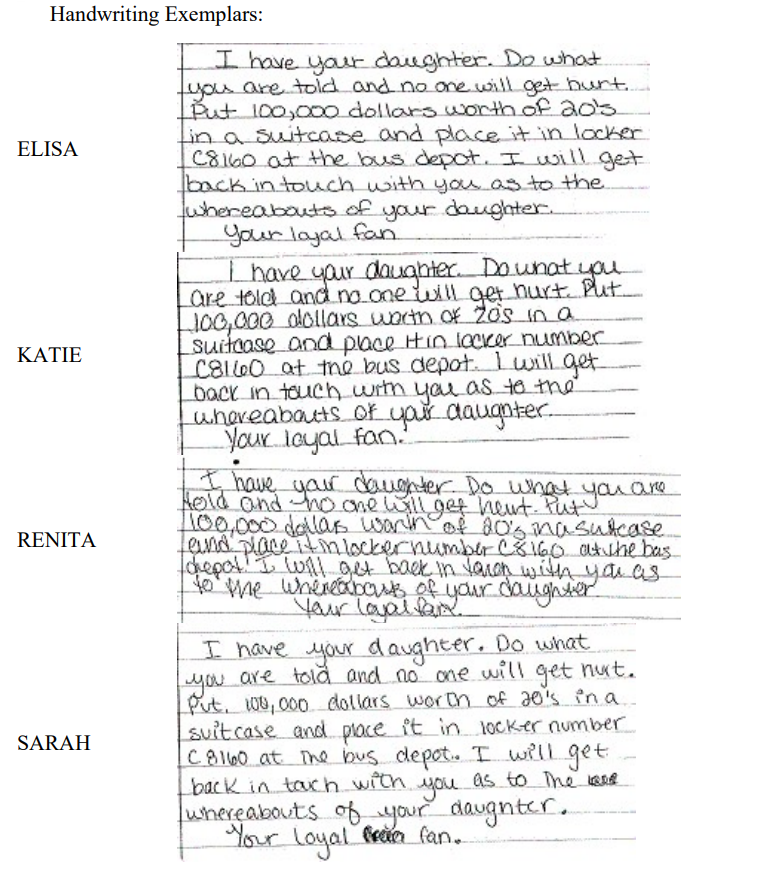 Handwriting Exemplars:
ELISA
I have your daughter. Do what
you are told and no one will get hurt.
Put 100,000 dollars worth of 20's
in a suitcase and place it in locker
C8160 at the bus depot. I will get
back in touch with you as to the
whereabouts of your daughter.
Your loyal fan
KATIE
I have your daughter. Do what you
are told and no one will get hurt. Put
100,000 dollars worth of 20's in a
suitcase and place it in locker number
C8160 at the bus depot. I will get
back in touch with you as to the
whereabouts of your daughter.
Your loyal fan.
RENITA
I have your daughter. Do what you are
told and no one will get hurt. Put
100,000 dollars worth of 20's in a suitcase
and place it in locker number C8160 at the bus
depot! I will get back in touch with you as
to the whereabouts of your daughter
Your loyal fan.
SARAH
I have your daughter. Do what
you are told and no one will get hurt.
Put. 100,000 dollars worth of 20's in a
suitcase and place it in locker number
C8160 at the bus depot. I will get
back in touch with you as to the
whereabouts of your daughter.
Your loyal fan.